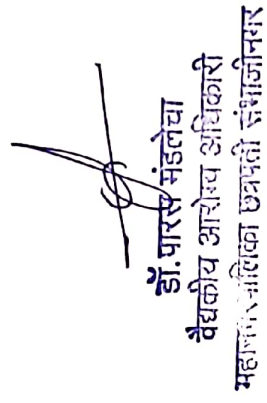 डॉ.पारस मंडलेचा
वैद्यकीय आरोग्य अधिकारी
महानगरपालिका छत्रपती संभाजीनगर